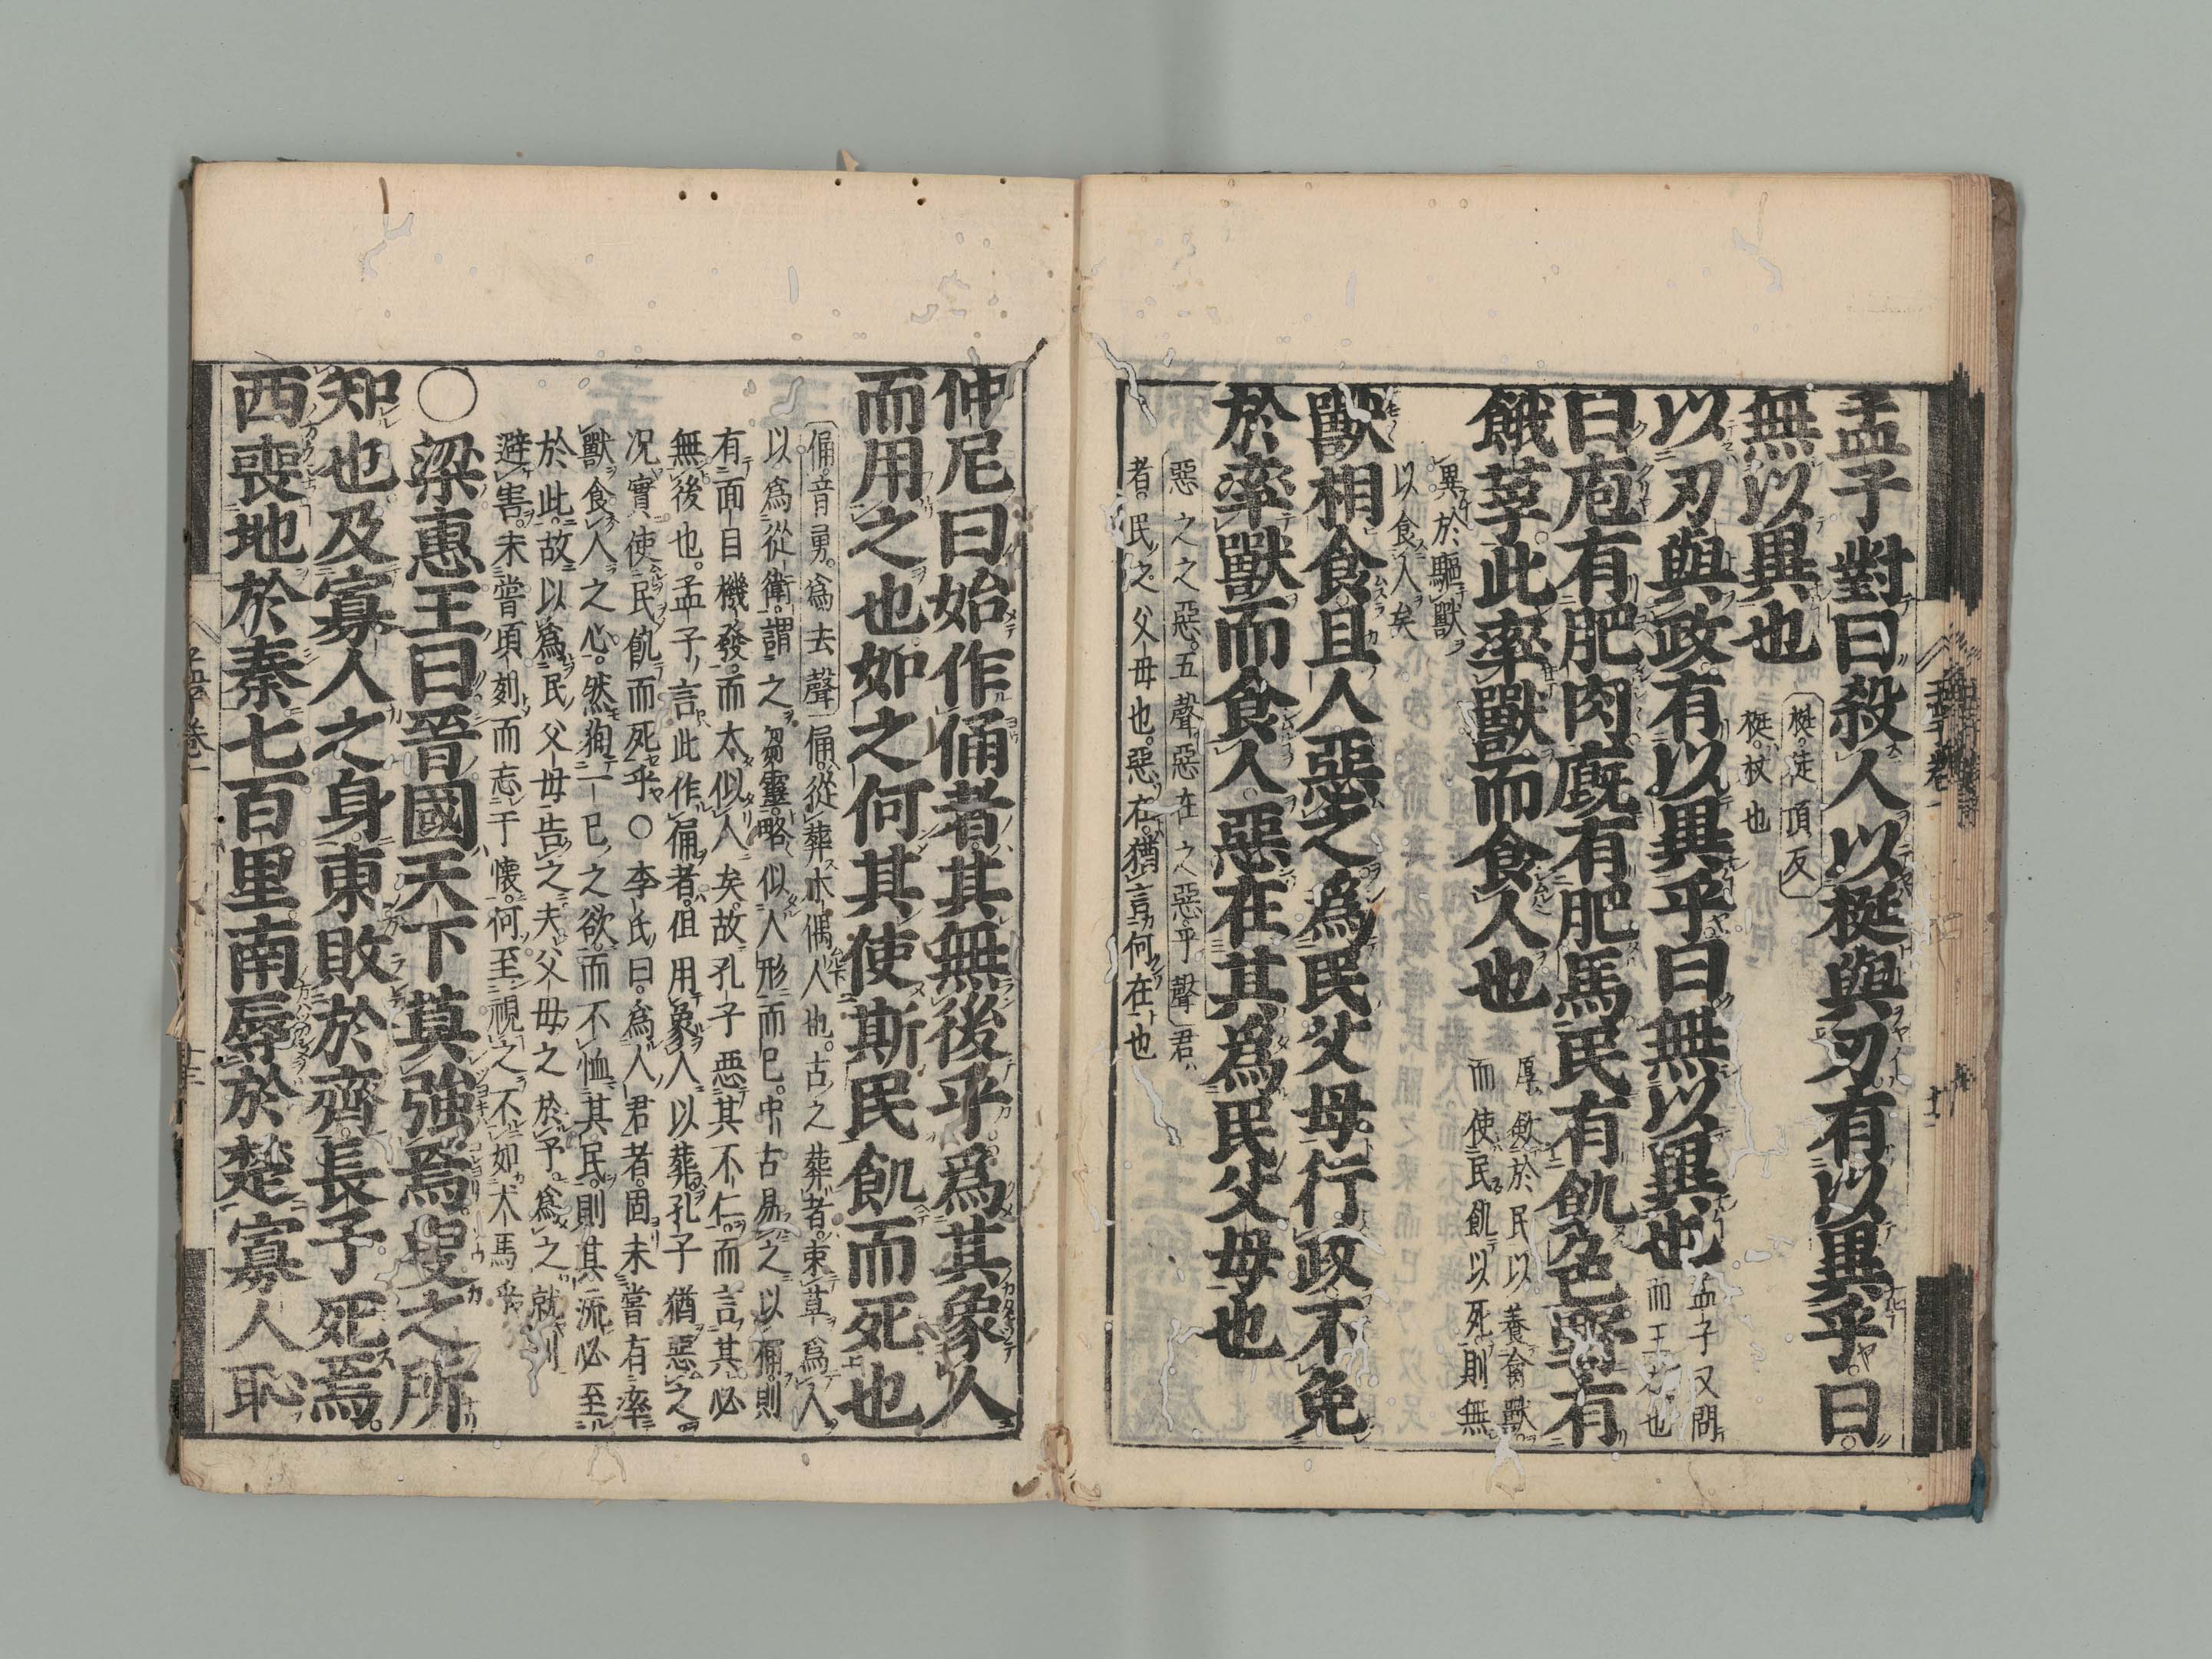 孟子對曰殺人以梃與刃有以異乎曰
無以異也
梃徒頂反
梃杖也
以刃與政有以異乎曰無以異也
孟子又問
而王也
曰庖有肥肉廐有肥馬民有飢色野有
餓莩此率獸而食人也
厚斂於民以養禽獸
而使民飢以死則無
異於驅獸
以食人矣
獸相食且人惡之爲民父母行政不免
於率獸而食人惡在其爲民父母也
惡之之惡五聲惡在之惡平聲君
者民之父母也惡在猶言何在也
仲尼曰始作俑者其無後乎爲其象人
而用之也如之何其使斯民飢而死也
俑音勇爲去聲俑從葬木偶人也古之葬者束草爲人
以爲從衛謂之芻靈略似人形而已中古易之以俑則
有面目機發而太似人矣故孔子惡其不仁而言其必
無後也孟子言此作俑者但用象人以葬孔子猶惡之
况實使民飢而死乎○李氏曰爲人君者固未嘗有率
獸食人之心然徇一己之欲而不恤其民則其流必至
於此故以爲民父母告之夫父母之於子爲之就利
避害未嘗頃刻而忘于懷何至視之不如犬馬乎
○梁惠王曰晉國天下莫強焉叟之所
知也及寡人之身東敗於齊長子死焉
西喪地於秦七百里南辱於楚寡人恥
孟子卷一
十三